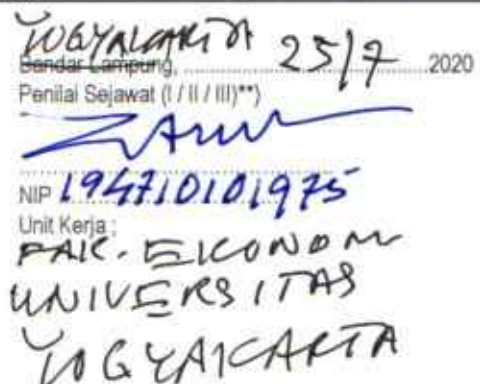 YOGYAKARTA
Bandar Lampung, 25/7 2020
Penilai Sejawat (I / II / III)**)
NIP 194710101975
Unit Kerja :
FAK. EKONOMI
UNIVERSITAS
YOGYAKARTA